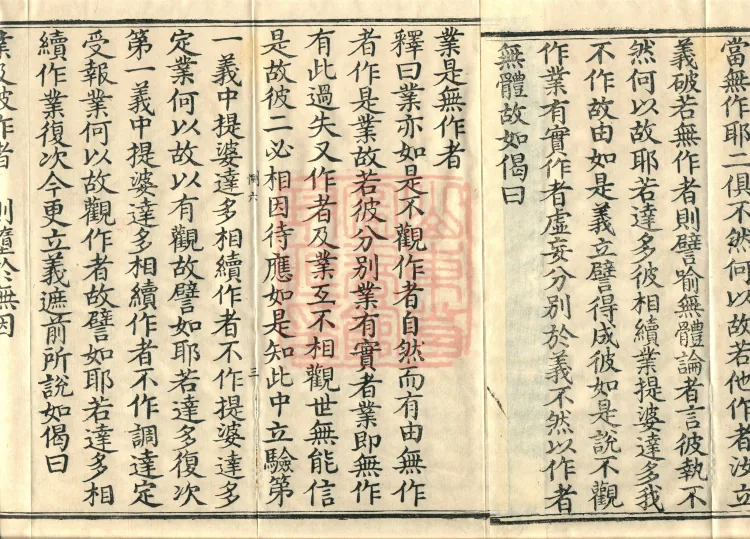 當無作耶二俱不然何以故若他作者法立
義破若無作者則譬喻無體論者言彼執不
然何以故耶若達多彼相續業提婆達多我
不作故由如是義立譬得成彼如是說不觀
作業有實作者虛妄分別於義不然以作者
無體故如偈曰
業是無作者
釋曰業亦如是不觀作者自然而有由無作
者作是業故若彼分別業有實者業即無作
有此過失又作者及業互不相觀世無能信
是故彼二必相因待應如是知此中立驗第
惻六 三
一義中提婆達多相續作者不作提婆達多
定業何以故以有觀故譬如耶若達多復次
第一義中提婆達多相續作者不作調達定
受報業何以故觀作者故譬如耶若達多相
續作業復次今更立義遮前所說如偈曰
業及彼作者 則墮於無因